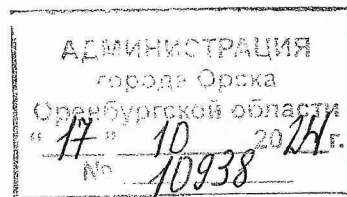 АДМИНИСТРАЦИЯ
города Орска
Оренбургской области
"17" 10 2024 г.
№ 10938